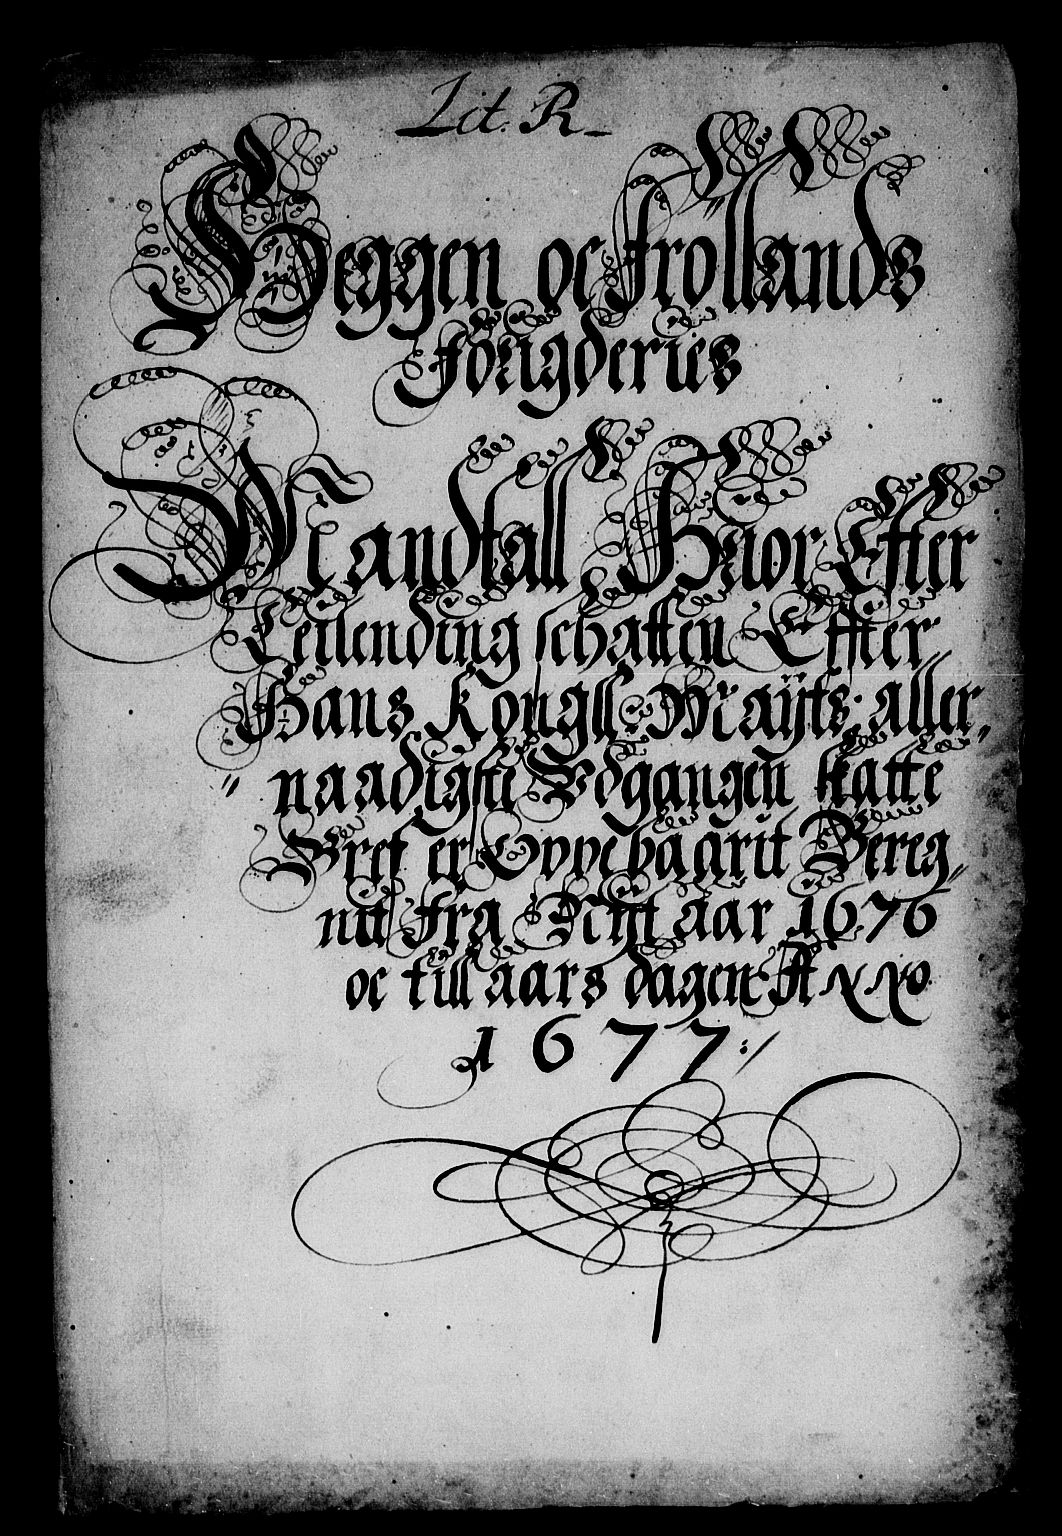 Lit. R
Heggen oc Fröllands
Fougderies
Mandtall Huor Effter
Leilending schatten Effter
Hans Kongll: Maÿts: aller,,
,, naadigste Vdgangen skatte
Bref er Oppebaarit Bereg,,
nit fra Nÿt aar 1676
oc till aars dagen A xxo
1677:/